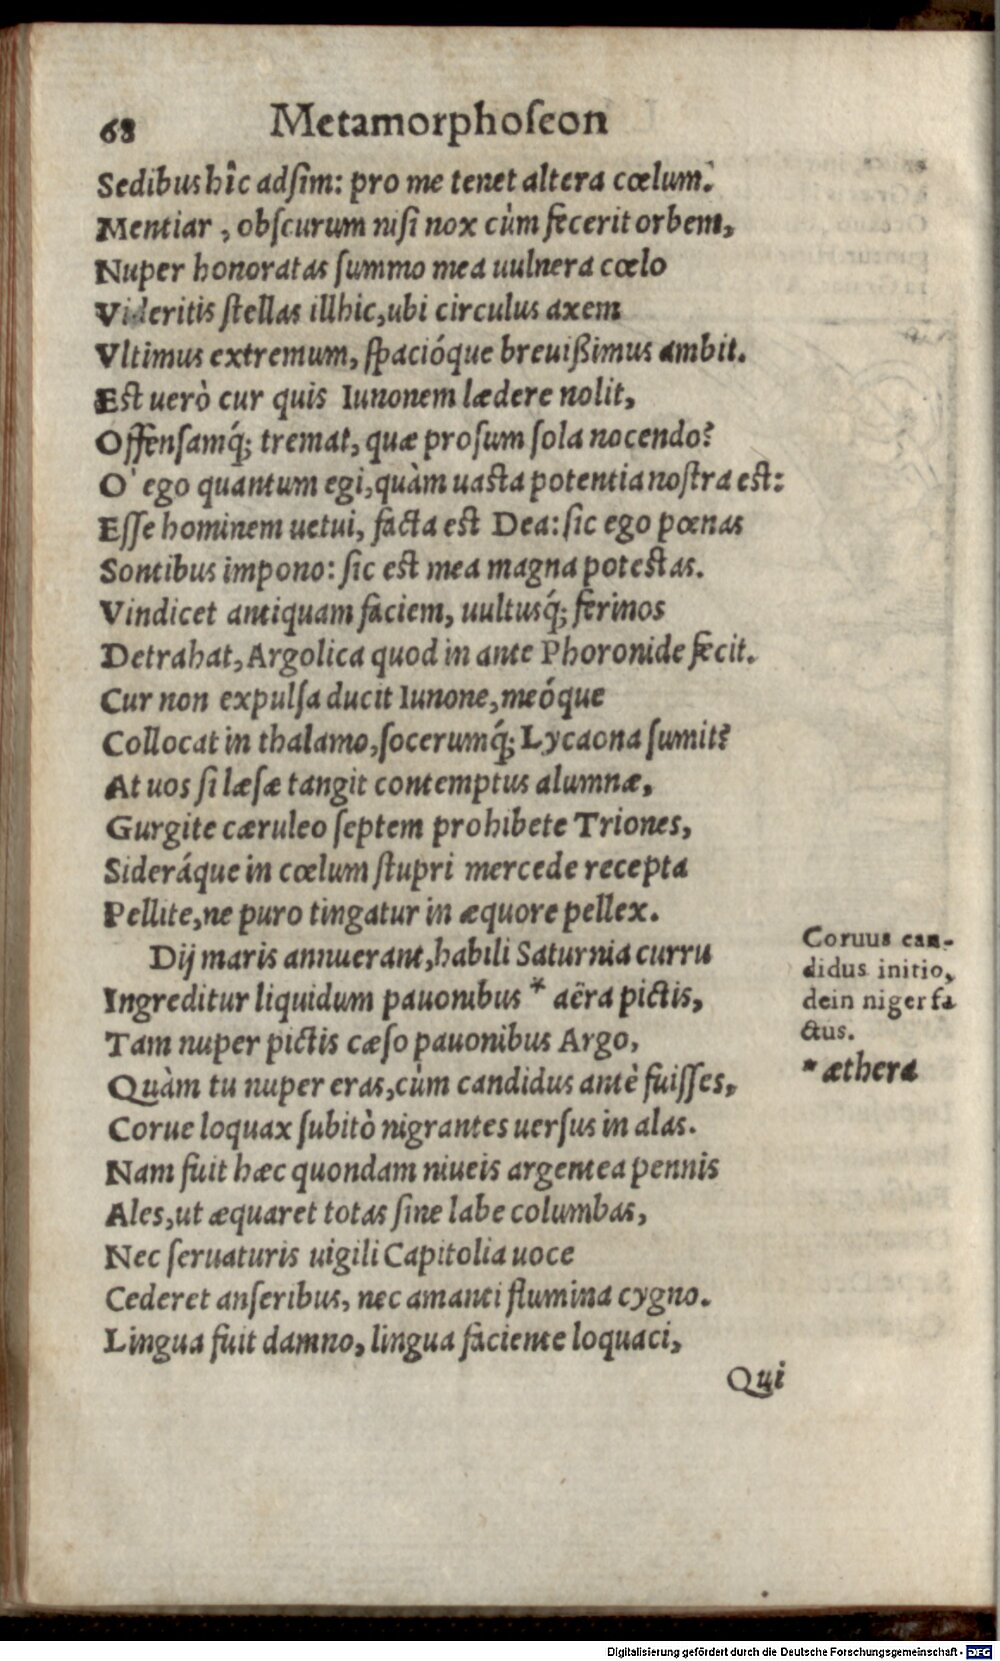 68 Metamorphoſeon
Sedibus hîc adſim: pro me tenet altera cœlum?
Mentiar, obſcurum niſi nox cùm fecerit orbem,
Nuper honoratas ſummo mea uulnera cœlo
Videritis ſtellas illhic, ubi circulus axem
Vltimus extremum, ſpacióque breuißimus ambit.
Eſt uerò cur quis Iunonem lædere nolit,
Offenſamq́; tremat, quæ proſum ſola nocendo?
O' ego quantum egi, quàm uaſta potentia noſtra eſt:
Eſſe hominem uetui, facta eſt Dea: ſic ego pœnas
Sontibus impono: ſic eſt mea magna poteſtas.
Vindicet antiquam faciem, uultusq́; ferinos
Detrahat, Argolica quod in ante Phoronide fecit.
Cur non expulſa ducit Iunone, meóque
Collocat in thalamo, ſocerumq́; Lycaona ſumit?
At uos ſi læſæ tangit contemptus alumnæ,
Gurgite cæruleo ſeptem prohibete Triones,
Sideráque in cœlum ſtupri mercede recepta
Pellite, ne puro tingatur in æquore pellex.
Dij maris annuerant, habili Saturnia curru
Ingreditur liquidum pauonibus * aëra pictis,
Tam nuper pictis cæſo pauonibus Argo,
Quàm tu nuper eras, cùm candidus antè fuiſſes,
Corue loquax ſubitò nigrantes uerſus in alas.
Nam fuit hæc quondam niueis argentea pennis
Ales, ut æquaret totas ſine labe columbas,
Nec ſeruaturis uigili Capitolia uoce
Cederet anſeribus, nec amanti flumina cygno.
Lingua fuit damno, lingua faciente loquaci,
Qui
Coruus can-
didus initio,
dein niger fa
ctus.
* æthera
Digitalisierung gefördert durch die Deutsche Forschungsgemeinschaft - DFG